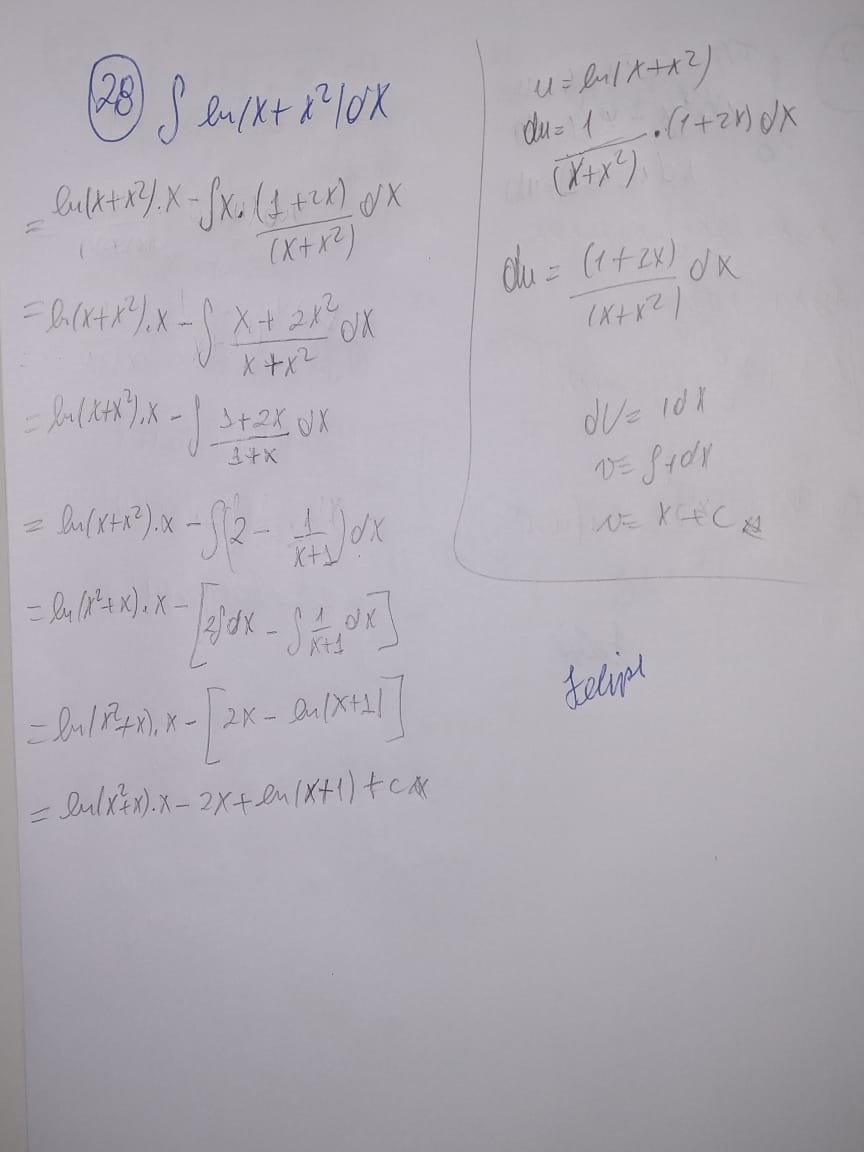 28 ∫ ln(x+x²)dx
= ln(x+x²).x - ∫x.(1+2x)/(x+x²) dx
= ln(x+x²).x - ∫ x+2x²/x+x² dx
= ln(x+x²).x - ∫ 1+2x/1+x dx
= ln(x+x²).x - ∫(2 - 1/x+1)dx
= ln(x²+x).x - [2∫dx - ∫1/x+1 dx]
= ln(x²+x).x - [2x - ln(x+1)]
= ln(x²+x).x - 2x + ln(x+1) + c
u = ln(x+x²)
du = 1/(x+x²) . (1+2x)dx
du = (1+2x)/(x+x²) dx
dv = 1dx
v = ∫1dx
v = x + c
Felipe